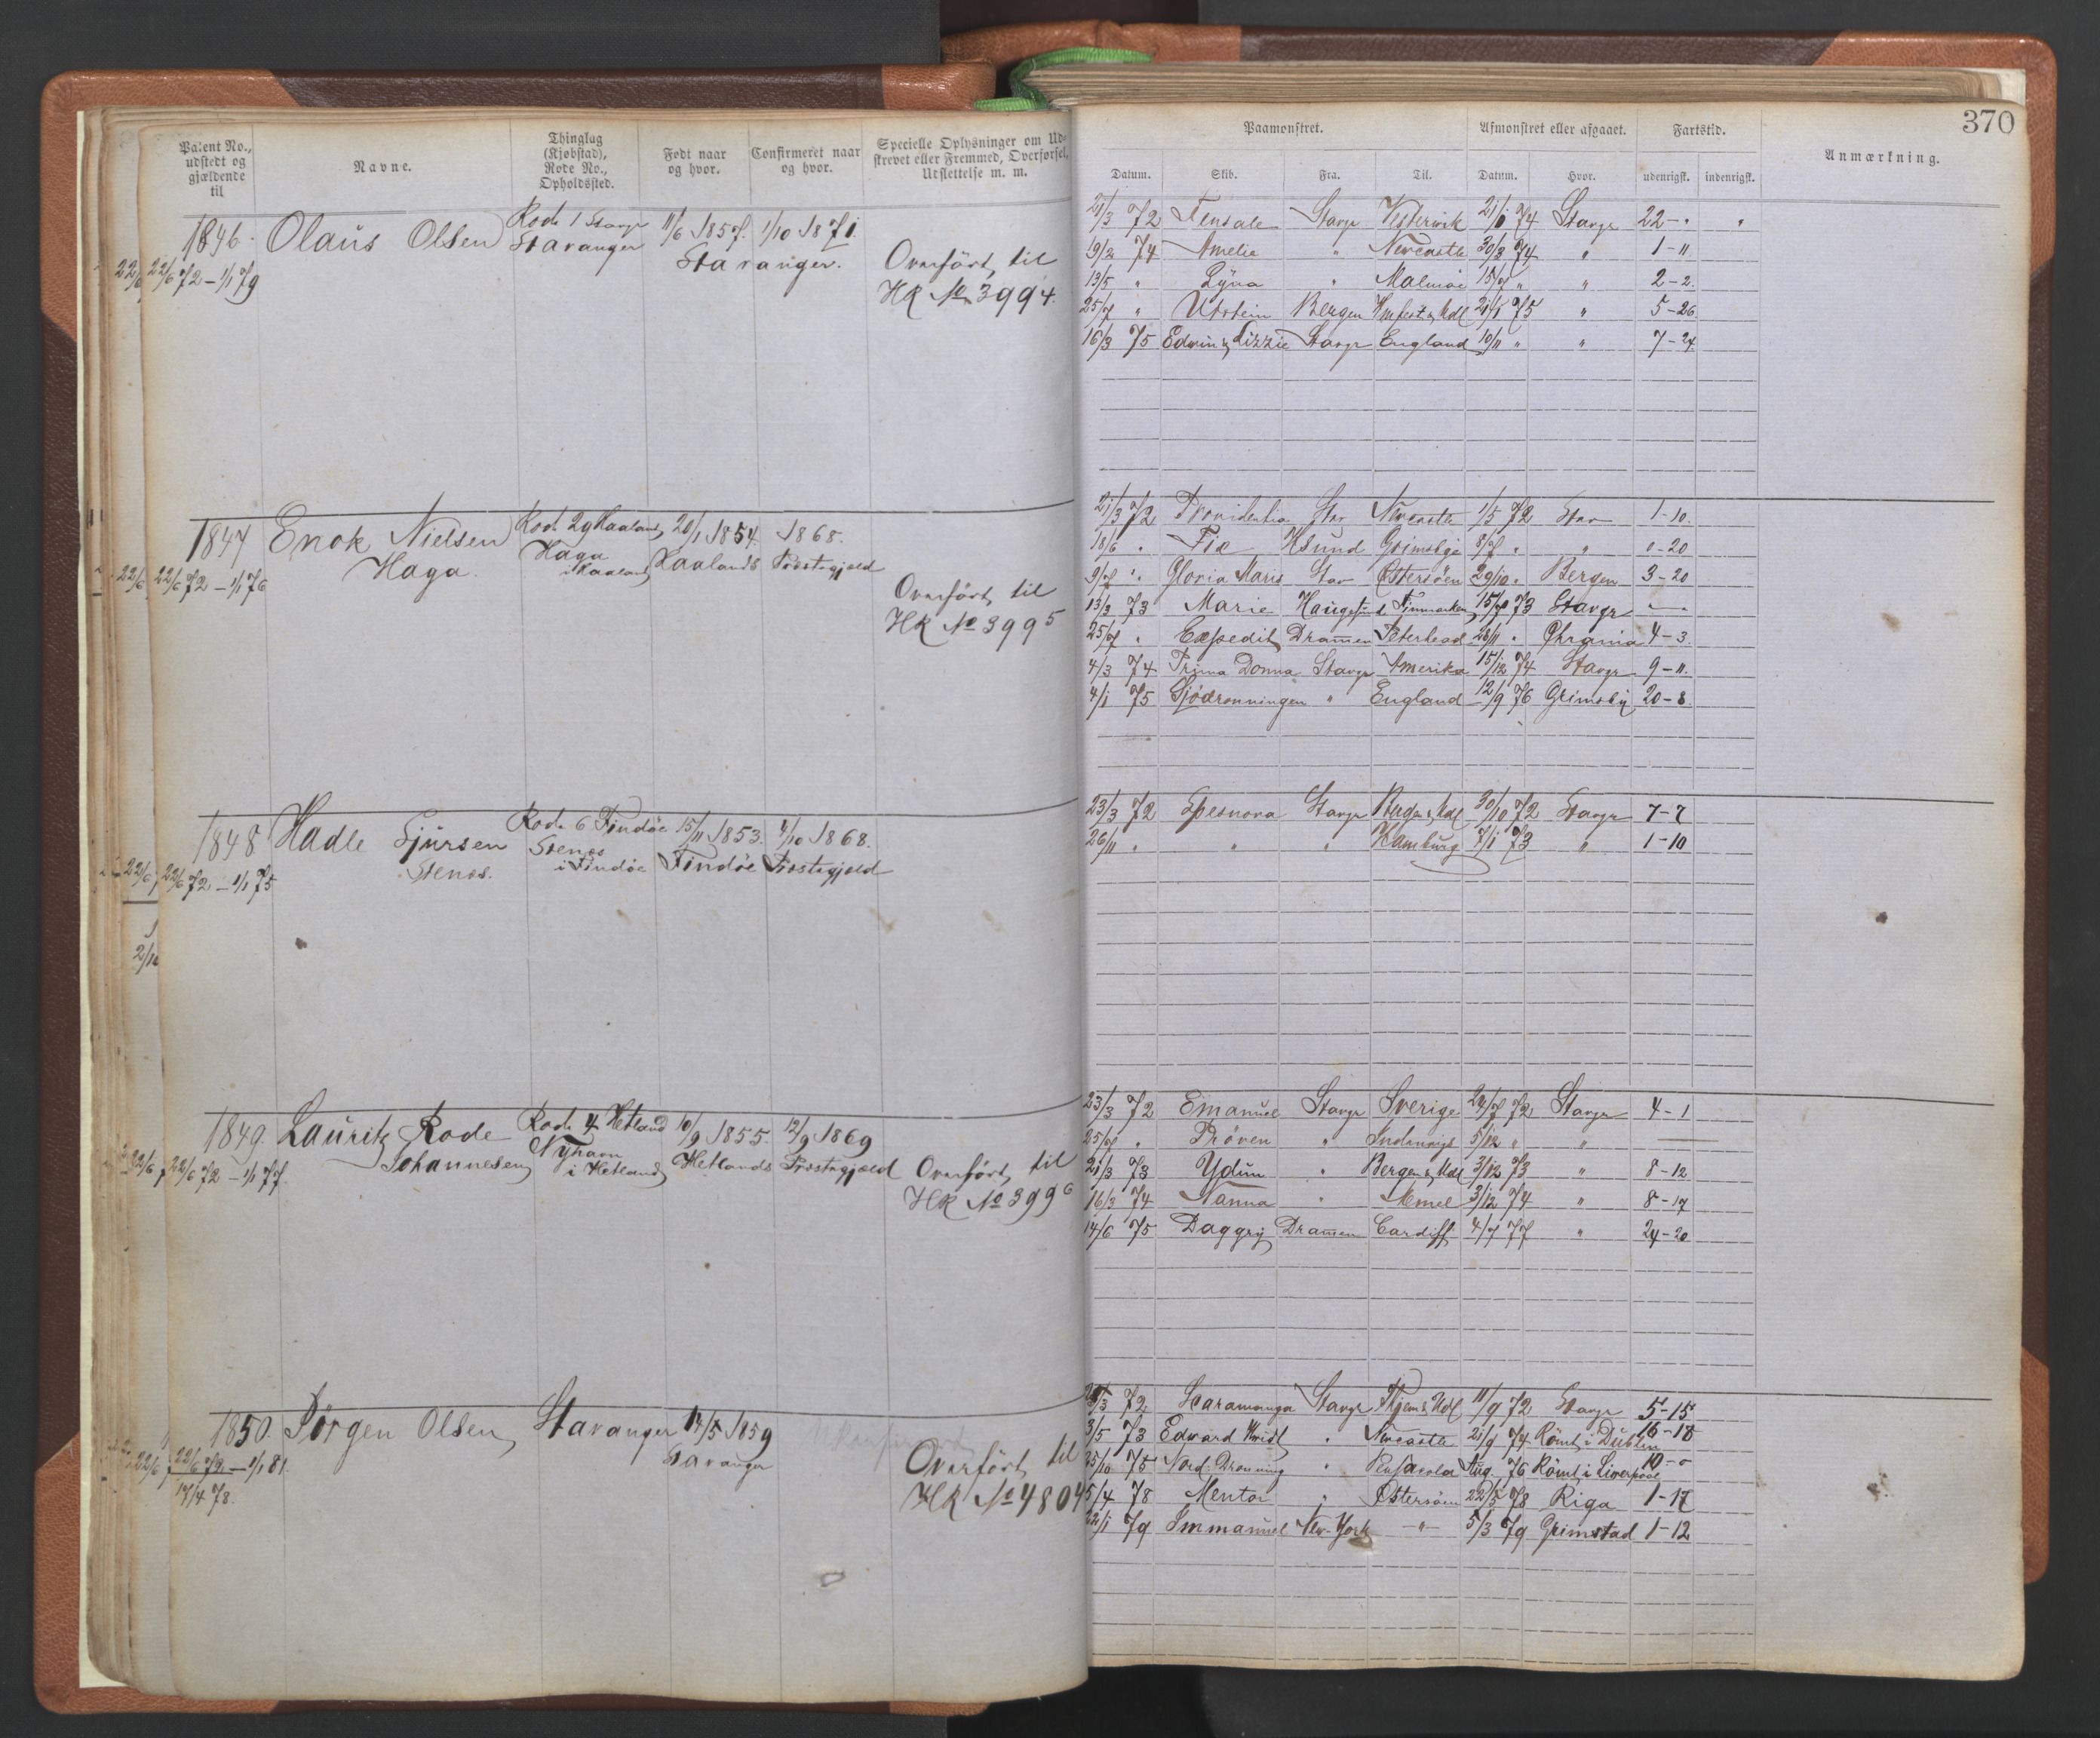 370
Patent No., udstedt og gjældende til
Navne.
Thinglag (Kjøbstad), Rode No., Opholdssted.
Født naar og hvor.
Confirmeret naar og hvor.
Specielle Oplysninger om Udskrevet eller Fremmed, Overførsel, Udslettelse m. m.
Paamønstret.
Afmønstret eller afgaaet.
Fartstid.
Anmærkning.
Datum. Skib. Fra. Til. Datum. Hvor. udenrigsk. indenrigsk.
1846. Olaus Olsen Rode 1 Stavgr 11/6 1857. 1/10 1871.
Stavanger Stavanger.
22/6 72 – 1/1 79
Overført til
HR No 3994.
21/3 72 Stavgr Vestervik 21/1 74 Stavgr 22 – "
19/2 74 Amelie " Newcastle 30/3 74 " 1 – 11
13/5 " Lyna " Malmöe 15/7 " " 2 – 2.
25/7 " Utstein Bergen 21/1 75 " 5 – 26.
16/3 75 Edwin & Lizzie Stavgr England 10/11 " " 7 – 24
1847 Enok Nielsen Rode 29 Haaland 20/1 1854. 1868.
Haga. Haga i Haaland Haalands Præstegjeld
22/6 72 – 1/1 76
Overført til
HR No 3995
21/3 72 Providentia Stav Newcastle 1/5 72 Stav 1 – 10.
18/6 " Fix Ksund Grimsbye 8/7 " " 0 – 20
9/7 " Gloria Maris Stav Østersøen 29/10 " Bergen 3 – 20
13/3 73 Marie Haugesund Finmarken 15/7 73 Stavgr
25/7 " Expedit Dramen Peterhead 28/11 " Chrania 4 – 3.
4/3 74 Prima Donna Stavgr Amerika 15/12 74 Stavgr 9 – 11.
4/1 75 Sjödronningen " England 12/9 76 Grimsby 20 – 8.
1848 Hadle Sjursen Rode 6 Findöe 15/11 1853. 4/10 1868.
Stenes. Stenes i Findöe Findöe Præstegjeld
22/6 72 – 1/1 75
23/3 72 Spesnova Stavgr 30/10 72 Stavgr 7 – 7
26/11 " " " Hamburg 7/1 73 " 1 – 10
1849. Lauritz Rode Rode 4 Hetland 10/9 1855. 12/9 1869
Johannesen Nyhavn i Hetland Hetlands Præstegjeld
22/6 72 – 1/1 77.
Overført til
HR No 3996
23/3 72 Emanuel Stavgr Sverige 24/7 72 Stavgr 4 – 1
25/7 " Prøven " Indenrigs 5/12 " "
21/3 73 Ydun " Bergen & Udl 3/12 73 " 8 – 12
16/3 74 Nanna " Memel 3/12 74 " 8 – 17
14/6 75 Daggry Dramen Cardiff 4/7 77 " 24 – 20
1850. Jörgen Olsen, Stavanger 14/5 1859
Stavanger
22/6 72 – 1/1 81.
17/4 78.
Overført til
HR No 4804
72 Scaramanga Stavgr 11/9 72 Stavgr 5 – 15
3/5 73 Edward " Newcastle 21/9 74 Römt i Dublin 16 – 18
25/10 75 Nord. Dronning " Pensacola Aug. 76 Römt i Liverpool 10 – 0
5/4 78 Mentor " Østersøen 22/5 78 Riga 1 – 17
22/1 79 Immanuel New-York – " – 5/3 79 Grimstad 1 – 12